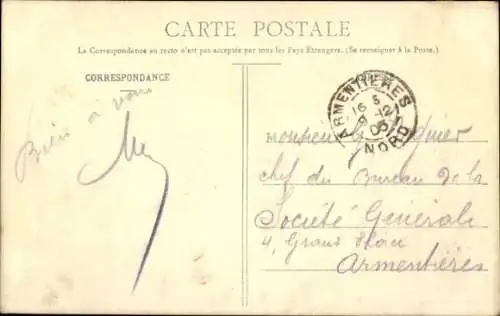 CARTE POSTALE
La Correspondance au recto n'est pas acceptée par tous les Pays Etrangers. (Se renseigner à la Poste.)
CORRESPONDANCE
Bien à vous
ARMENTIÈRES
16 5
9 -12
05
NORD
Monsieur
chef du Bureau de la
Société Générale
4, Grand Place
Armentières